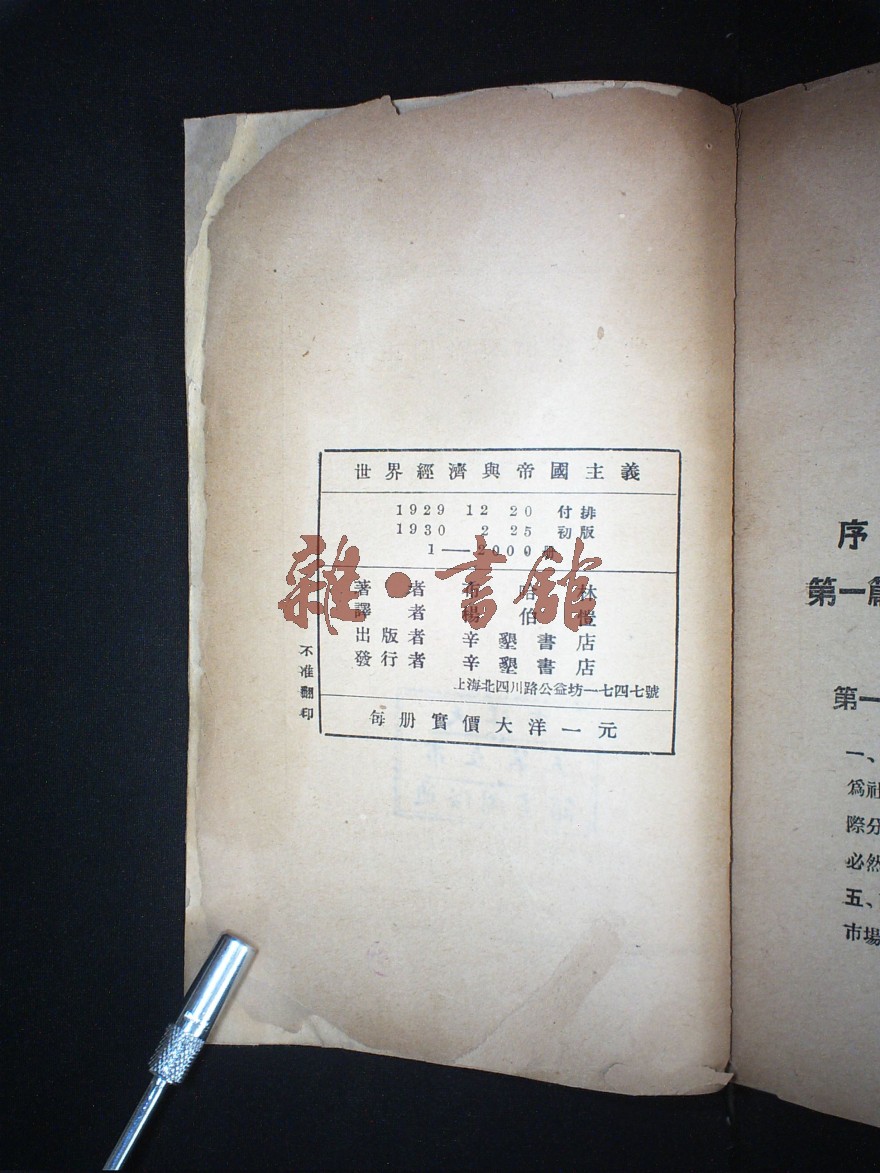 世界經濟與帝國主義
1929 12 20 付排
1930 2 25 初版
1——2000册
著者 布哈林
譯者 楊伯愷
出版者 辛墾書店
發行者 辛墾書店
上海北四川路公益坊一七四七號
每册實價大洋一元
不准翻印
雜·書館
序
第一篇
第一
一、
爲社
際分
必然
五、
市場